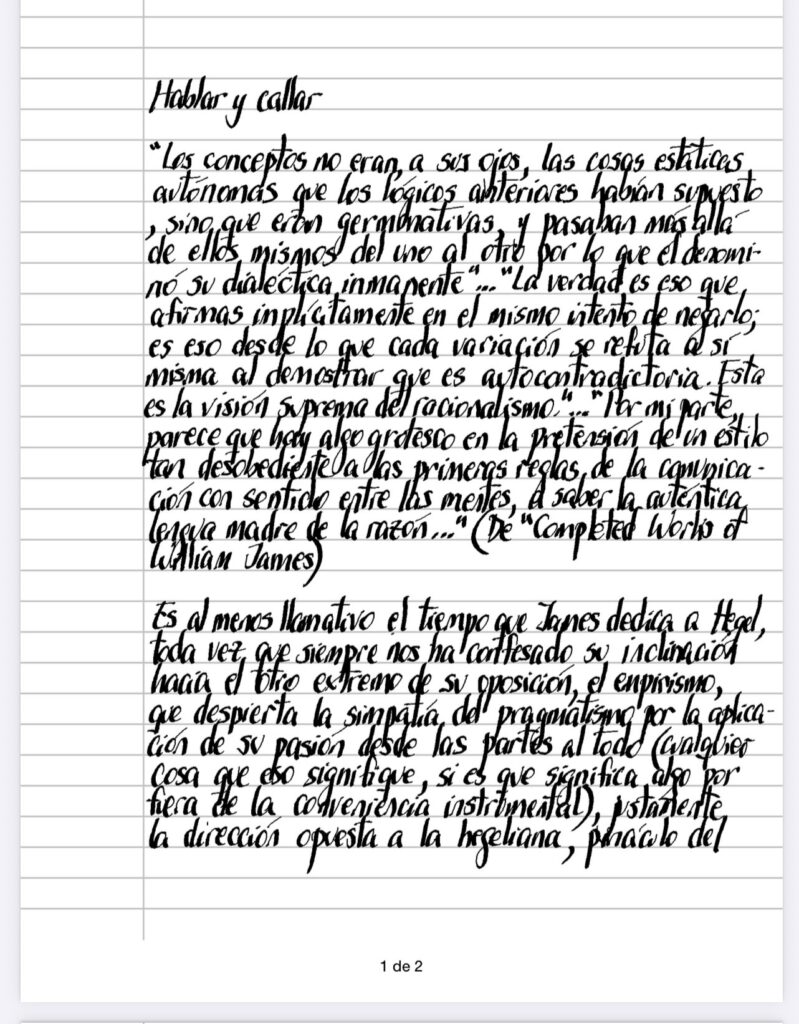 Hablar y callar
"Los conceptos no eran, a sus ojos, las cosas estáticas
autónomas que los lógicos anteriores habían supuesto
, sino que eran germinativas, y pasaban más allá
de ellos mismos del uno al otro por lo que él denomi-
nó su dialéctica inmanente"... "La verdad es eso que
afirmas inplícitamente en el mismo intento de negarlo;
es eso desde lo que cada variación se refuta a sí
misma al demostrar que es autocontradictoria. Esta
es la visión suprema del racionalismo."... "Por mi parte,
parece que hay algo grotesco en la pretensión de un estilo
tan desobediente a las primeras reglas, de la comunica-
ción con sentido entre las mentes, a saber la auténtica
lengua madre de la razón..." (De "Completed Works of
William James)
Es al menos llamativo el tiempo que James dedica a Hegel,
toda vez que siempre nos ha confesado su inclinación
hacia el otro extremo de su oposición, el enpirismo,
que despierta la simpatía del pragmatismo por la aplica-
ción de su pasión desde las partes al todo (cualquier
cosa que eso signifique, si es que significa algo por
fuera de la conveniencia instrumental), justamente
la dirección opuesta a la hegeliana, pináculo del
1 de 2